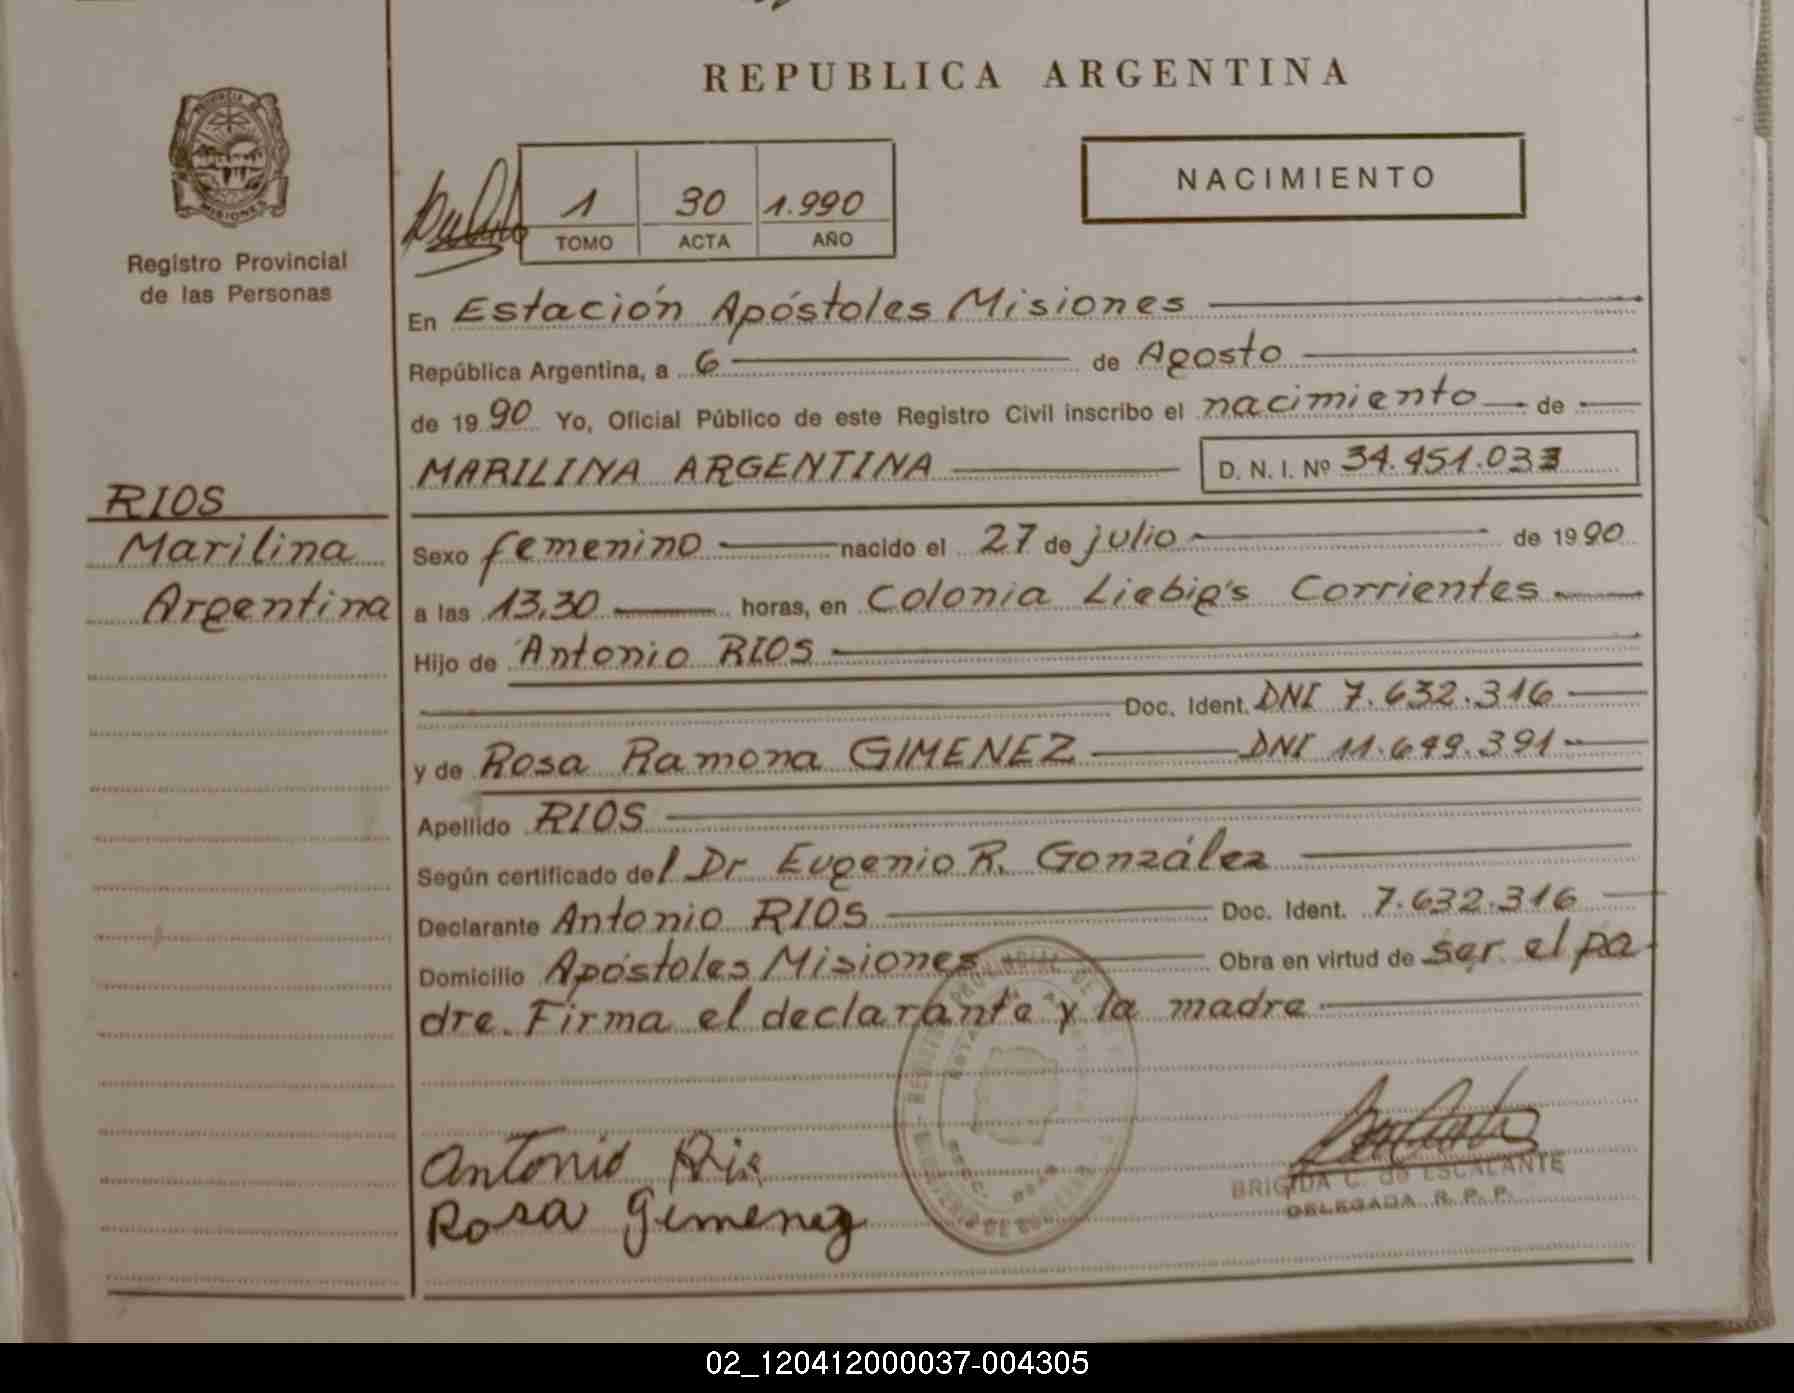 REPUBLICA ARGENTINA
PROVINCIA DE
MISIONES
Registro Provincial
de las Personas
1 30 1.990
TOMO ACTA AÑO
NACIMIENTO
En Estación Apóstoles Misiones
República Argentina, a 6 de Agosto
de 1990 Yo, Oficial Público de este Registro Civil inscribo el nacimiento de
MARILINA ARGENTINA D. N. I. Nº 34.451.033
RIOS
Marilina
Argentina
Sexo femenino nacido el 27 de julio de 1990
a las 13,30 horas, en Colonia Liebig's Corrientes
Hijo de Antonio RIOS
Doc. Ident. DNI 7.632.316
y de Rosa Ramona GIMENEZ DNI 11.649.391
Apellido RIOS
Según certificado del Dr Eugenio R. González
Declarante Antonio RIOS Doc. Ident. 7.632.316
Domicilio Apóstoles Misiones Obra en virtud de ser el pa
dre. Firma el declarante y la madre
Antonio Rios
Rosa Gimenez
BRIGIDA C. de ESCALANTE
DELEGADA R. P. P.
02_120412000037-004305